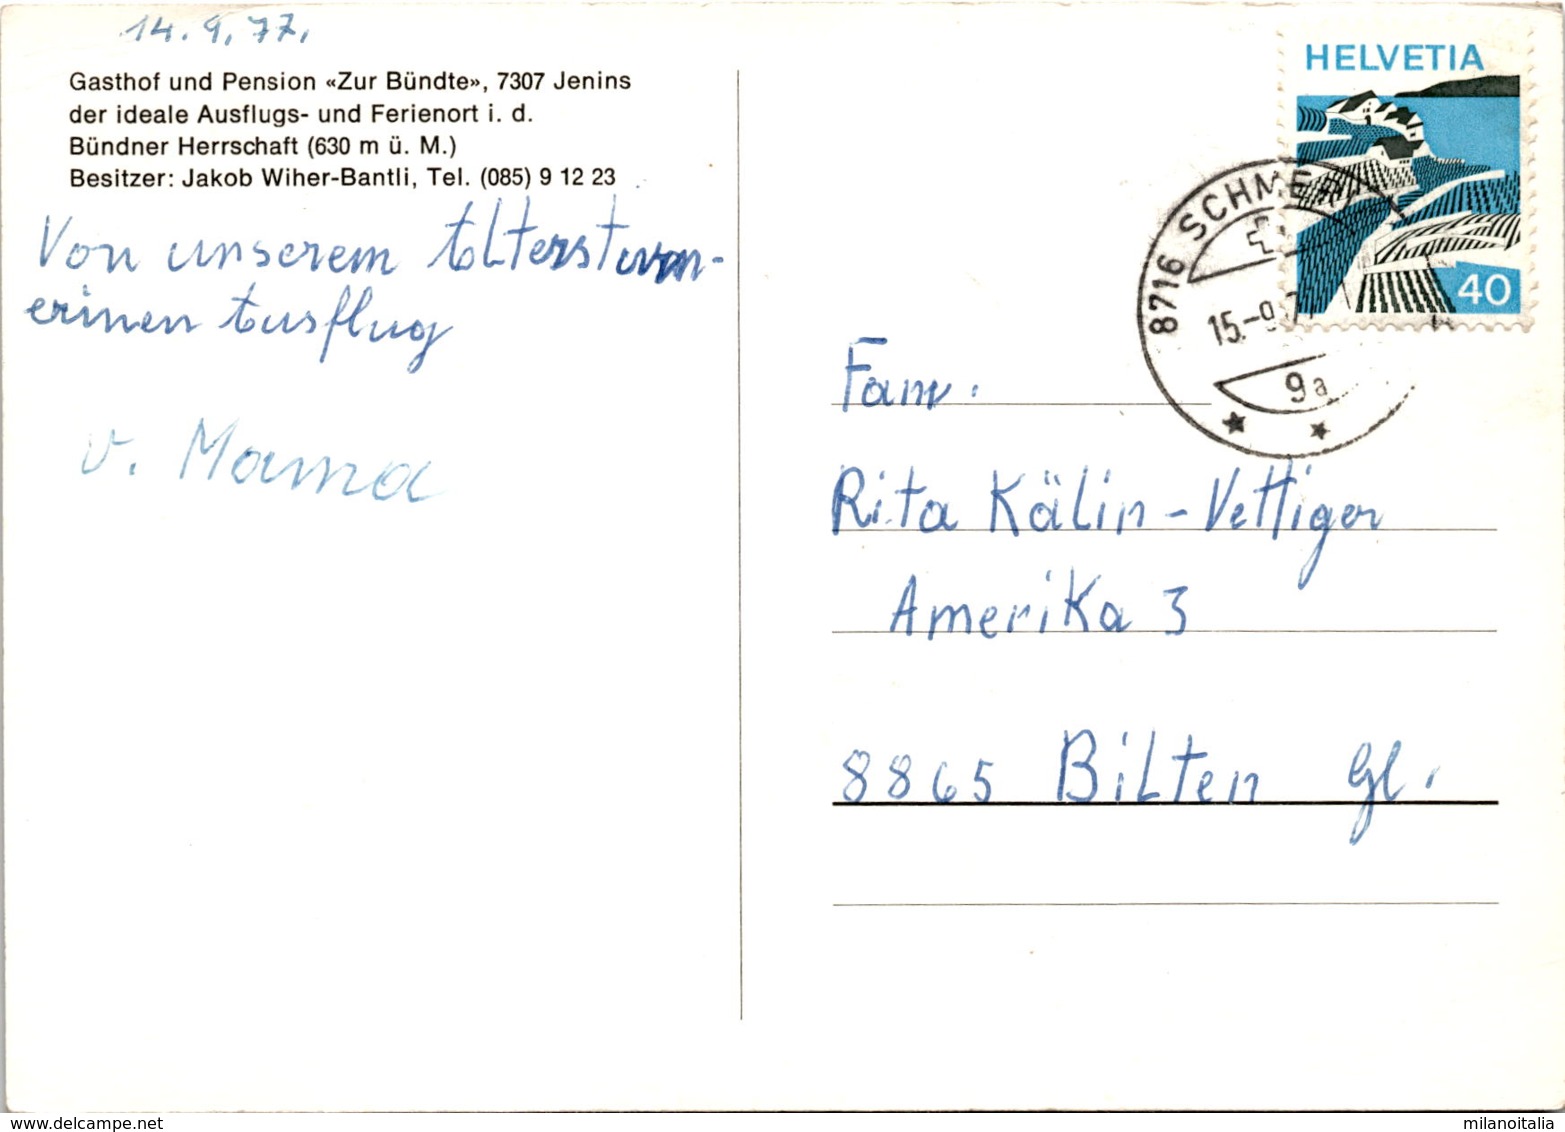 14. 9. 77.
Gasthof und Pension «Zur Bündte», 7307 Jenins
der ideale Ausflugs- und Ferienort i. d.
Bündner Herrschaft (630 m ü. M.)
Besitzer: Jakob Wiher-Bantli, Tel. (085) 9 12 23
Von unserem Altersturn-
erinen Ausflug
v. Mama
HELVETIA
40
8716 SCHME
15.-9.7
9a
Fam.
Rita Kälin-Vettiger
Amerika 3
8865 Bilten Gl.
www.delcampe.net
milanoitalia